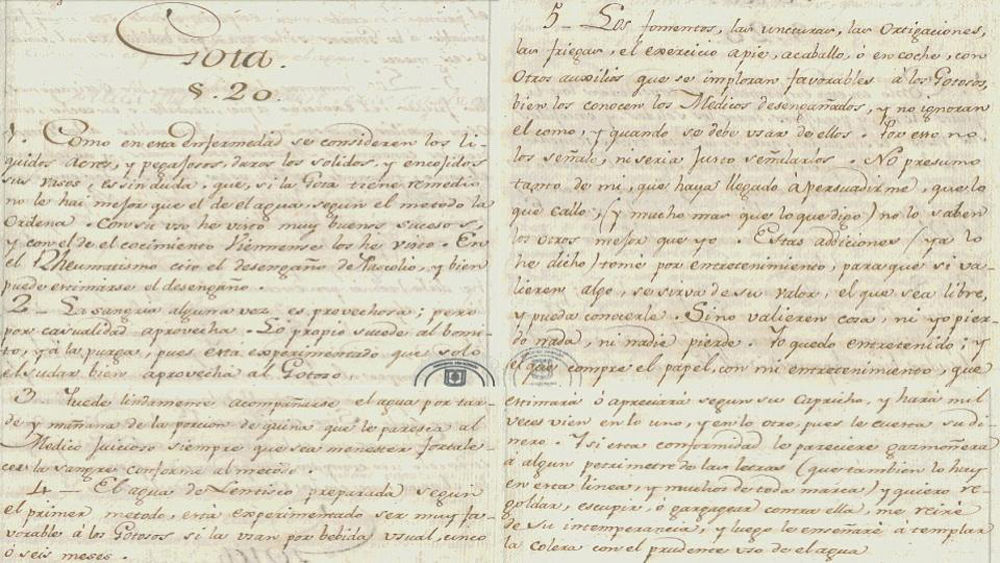 Gota.
§. 20.
1. Como en esta Enfermedad se consideren los li-
quidos acres, y pegajosos, duros los solidos, y encojidos
sus vasos, es sin duda, que, si la Gota tiene remedio
no le hai mejor que el de el agua, segun el metodo la
Ordena. Con su uso he visto muy buenos sucesos,
y con el de el cocimiento Viennense los he visto. En
el Rheumatismo cito el desengaño de y bien
puede estimarse el desengaño.
2 — La sangria alguna vez es provechosa; pero
por casualidad aprovecha. Lo propio sucede al bomi-
to, y á la purga, pues está experimentado que solo
el sudar bien aprovecha al Gotoso.
3 Puede lindamente acompañarse el agua por tar-
de y mañana de la porcion de quina que le paresca al
Medico Juicioso siempre que sea menester fortale-
cer la sangre conforme al metodo.
4 — El agua de Lentisco preparada segun
el primer metodo, está experimentado ser muy fa-
vorable á los Gotosos si la usan por bebida usual, cinco
ó seis meses.
5 — Los fomentos, las uncturas, las Ortigaciones,
las friegas, el exercicio apie, acaballo, ó en coche, con
Otros auxilios que se imploran favorables á los Gotosos,
bien los conocen los Medicos desengañados, y no ignoran
el como, y quando se debe usar de ellos. Por esto no
los señalo, ni seria Justo señalarlos. No presumo
tanto de mi, que haya llegado á persuadirme, que lo
que callo, (y mucho mas que lo que digo) no lo saben
los otros mejor que yo. Estas addiciones (ya lo
he dicho) tomé por entretenimiento, para que si va-
lieren algo, se sirva de su valor, el que sea libre,
y pueda conocerle. Si no valieren cosa, ni yo pier-
do nada, ni nadie pierde. Yo quedo entretenido; y
el que compre el papel, con mi entretenimiento, que
estimará ó apreciará segun su Capricho, y hará mil
veces bien en lo uno, y en lo otro, pues le cuesta su di-
nero. Y si esta conformidad le pareciere gazmoñera
á algun petrimetre de las letras (que tambien lo hay
en esta linea, y muchos de toda marca) y quiere re-
goldar, escupir, ó gargagear contra ella, me reiré
de su intemperancia, y luego le enseñaré á templar
la colera con el prudente uso de el agua